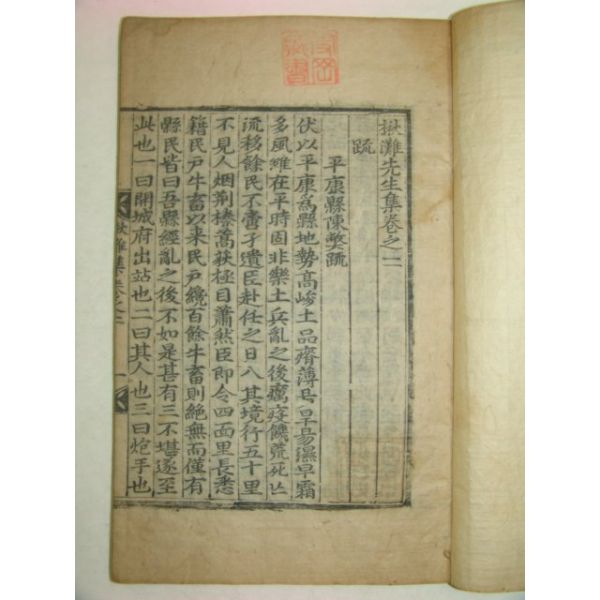 楸灘先生集卷之二
疏
平康縣陳弊疏
伏以平康爲縣地勢高峻土品瘠薄易旱易濕早霜
多風雖在平時固非樂土兵亂之後癘疫饑荒死亡
流移餘民不啻孑遺臣赴任之日入其境行五十里
不見人烟荆榛蒿荻極目蕭然臣即令四面里長悉
籍民戶牛畜以来民戶纔百餘牛畜則絶無而僅有
縣民皆曰吾縣經亂之後不如是甚有三不堪遂至
此也一曰開城府出站也二曰其人也三曰炮手也
楸灘集卷之二 一